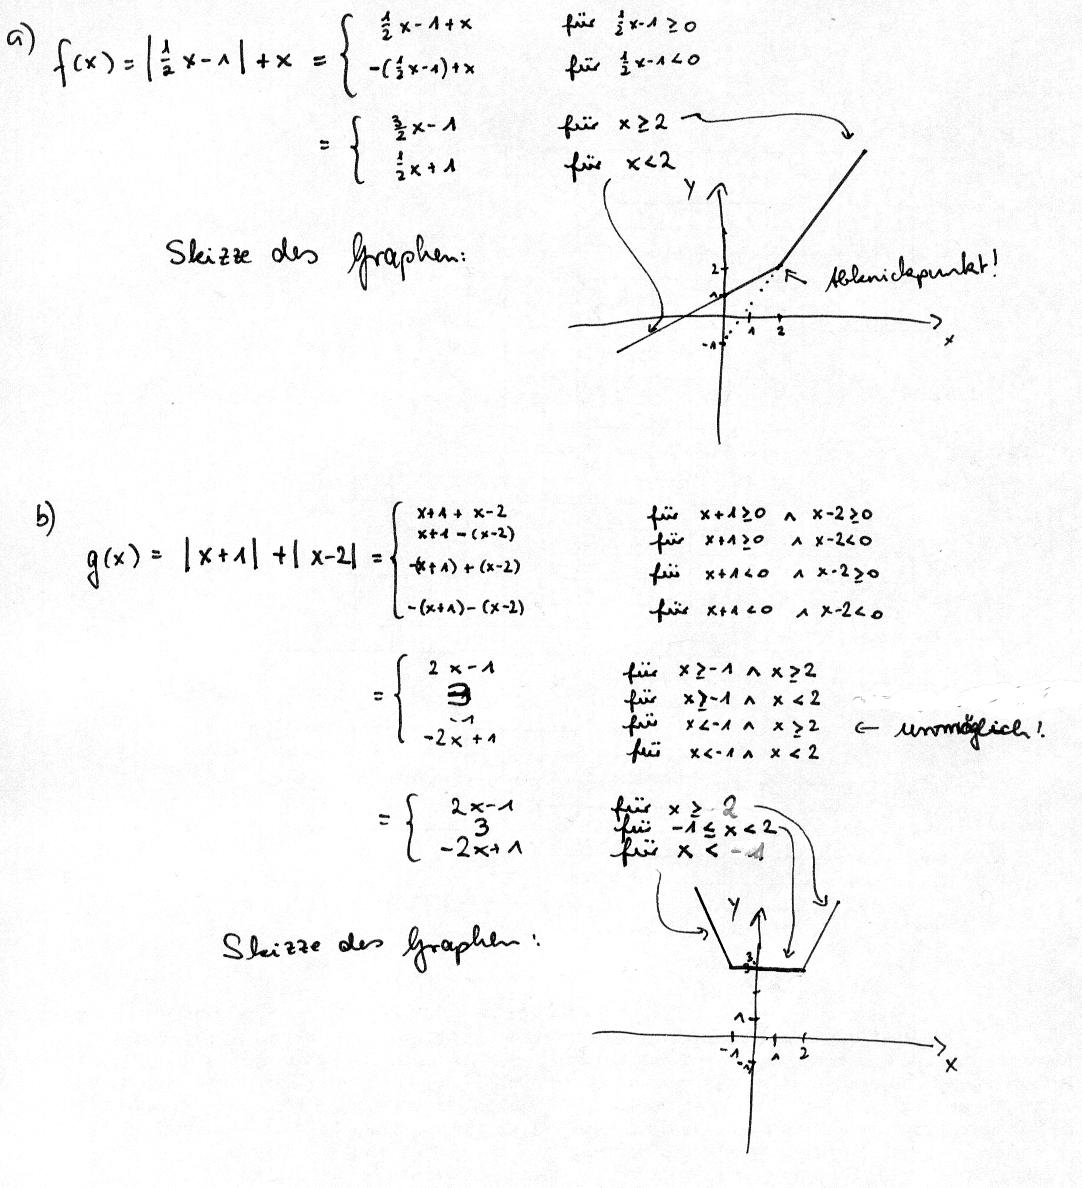 a)
f(x) = |½x-1| + x = { ½x-1+x für ½x-1≥0
-(½x-1)+x für ½x-1<0
= { 3/2x-1 für x≥2
½x+1 für x<2
Skizze des Graphen:
Y
2
1
Abknickpunkt!
1 2
-1
x
b)
g(x) = |x+1| + |x-2| = { x+1 + x-2 für x+1≥0 ∧ x-2≥0
x+1-(x-2) für x+1≥0 ∧ x-2<0
-(x+1)+(x-2) für x+1<0 ∧ x-2≥0
-(x+1)-(x-2) für x+1<0 ∧ x-2<0
= { 2x-1 für x≥-1 ∧ x≥2
3 für x≥-1 ∧ x<2
für x<-1 ∧ x≥2 ← unmöglich!
-2x+1 für x<-1 ∧ x<2
= { 2x-1 für x≥2
3 für -1≤x<2
-2x+1 für x<-1
Skizze des Graphen:
Y
3
1
-1 1 2
-1
x